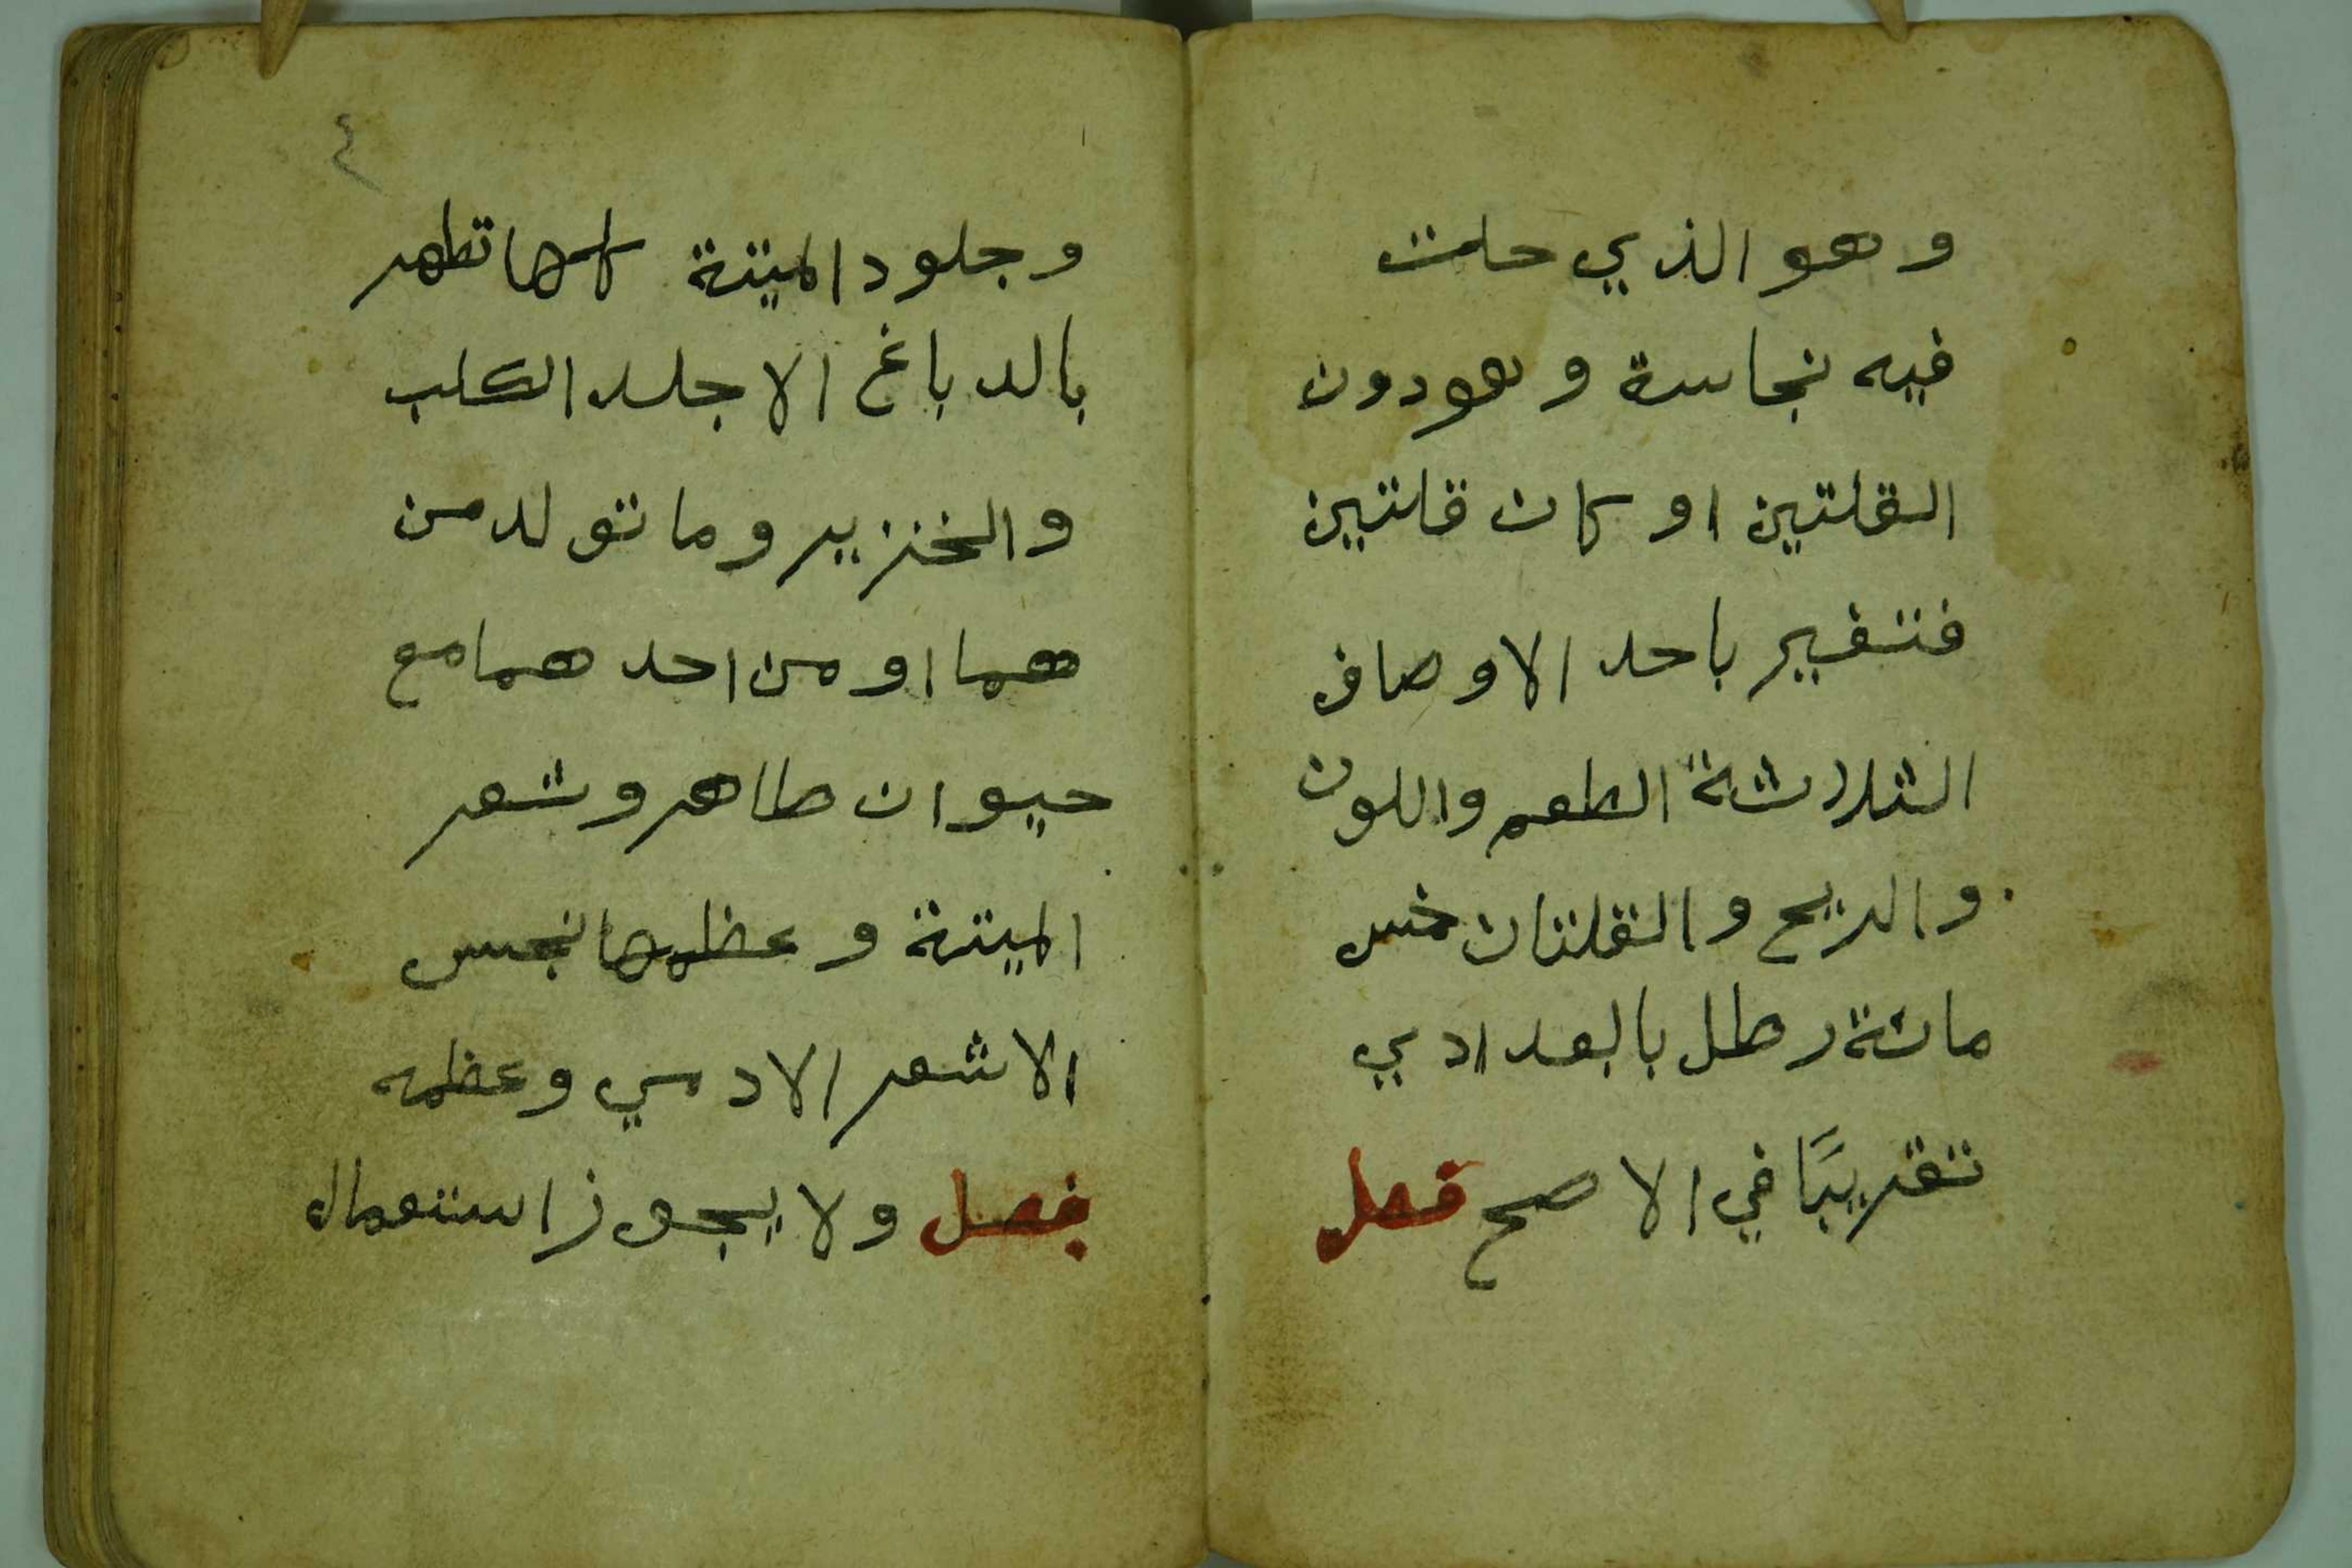 وهو الذي حلت
فيه نجاسة وهو دون
القلتين او كان قلتين
فتغير باحد الاوصاف
الثلاثة الطعم واللون
والريح والقلتان خمس
مائة رطل بالبعدادي
تقريبًا في الاصح فصل
٤
وجلود الميتة كلها تطهر
بالدباغ الا جلد الكلب
والخنزير وما تولد من
هما او من احد هما مع
حيوان طاهر وشعر
الميتة وعظمها نجس
الا شعر الادمي وعظمه
فصل ولا يجوز استعمال